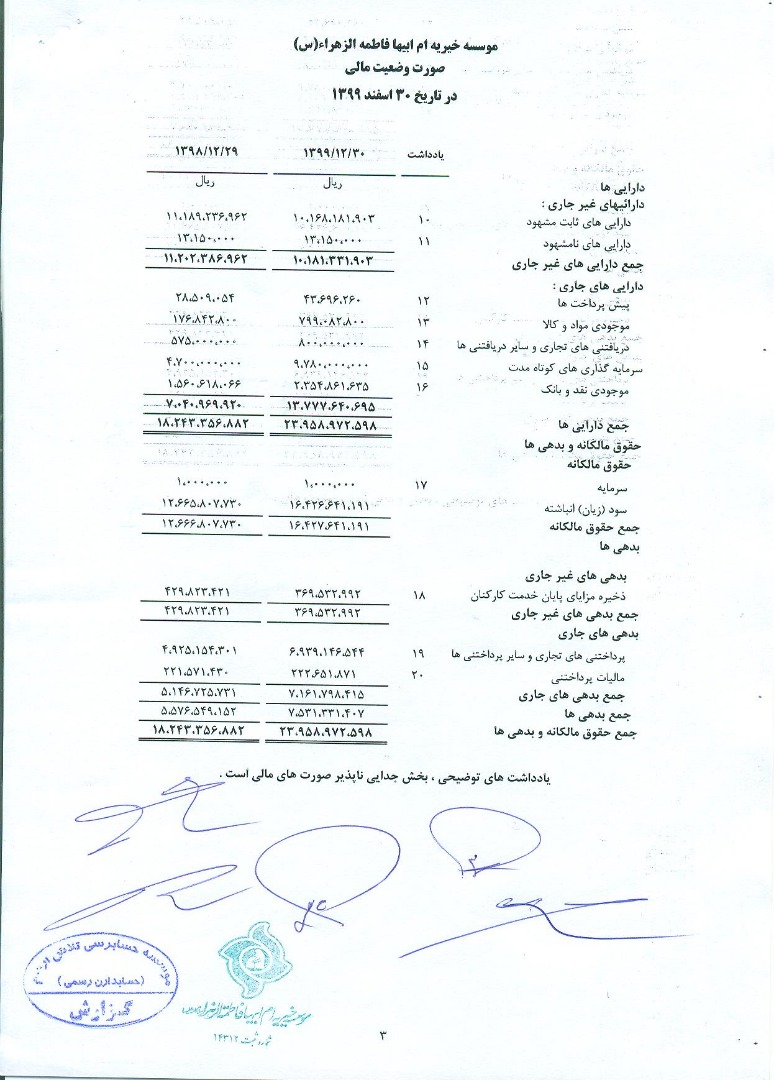 موسسه خیریه ام ابیها فاطمه الزهراء(س)
صورت وضعیت مالی
در تاریخ ۳۰ اسفند ۱۳۹۹
یادداشت ۱۳۹۹/۱۲/۳۰ ۱۳۹۸/۱۲/۲۹
ریال ریال
دارایی ها
دارائیهای غیر جاری :
دارایی های ثابت مشهود ۱۰ ۱۰،۱۶۸،۱۸۱،۹۰۳ ۱۱،۱۸۹،۲۳۶،۹۶۲
دارایی های نامشهود ۱۱ ۱۳،۱۵۰،۰۰۰ ۱۳،۱۵۰،۰۰۰
جمع دارایی های غیر جاری ۱۰،۱۸۱،۳۳۱،۹۰۳ ۱۱،۲۰۲،۳۸۶،۹۶۲
دارایی های جاری :
پیش پرداخت ها ۱۲ ۴۳،۶۹۶،۲۶۰ ۲۸،۵۰۹،۰۵۴
موجودی مواد و کالا ۱۳ ۷۹۹،۰۸۲،۸۰۰ ۱۷۶،۸۴۲،۸۰۰
دریافتنی های تجاری و سایر دریافتنی ها ۱۴ ۸۰۰،۰۰۰،۰۰۰ ۵۷۵،۰۰۰،۰۰۰
سرمایه گذاری های کوتاه مدت ۱۵ ۹،۷۸۰،۰۰۰،۰۰۰ ۴،۷۰۰،۰۰۰،۰۰۰
موجودی نقد و بانک ۱۶ ۲،۳۵۴،۸۶۱،۶۳۵ ۱،۵۶۰،۶۱۸،۰۶۶
۱۳،۷۷۷،۶۴۰،۶۹۵ ۷،۰۴۰،۹۶۹،۹۲۰
جمع دارایی ها ۲۳،۹۵۸،۹۷۲،۵۹۸ ۱۸،۲۴۳،۳۵۶،۸۸۲
حقوق مالکانه و بدهی ها
حقوق مالکانه
سرمایه ۱۷ ۱،۰۰۰،۰۰۰ ۱،۰۰۰،۰۰۰
سود (زیان) انباشته ۱۶،۴۲۶،۶۴۱،۱۹۱ ۱۲،۶۶۵،۸۰۷،۷۳۰
جمع حقوق مالکانه ۱۶،۴۲۷،۶۴۱،۱۹۱ ۱۲،۶۶۶،۸۰۷،۷۳۰
بدهی ها
بدهی های غیر جاری
ذخیره مزایای پایان خدمت کارکنان ۱۸ ۳۶۹،۵۳۲،۹۹۲ ۴۲۹،۸۲۳،۴۲۱
جمع بدهی های غیر جاری ۳۶۹،۵۳۲،۹۹۲ ۴۲۹،۸۲۳،۴۲۱
بدهی های جاری
پرداختنی های تجاری و سایر پرداختنی ها ۱۹ ۶،۹۳۹،۱۴۶،۵۴۴ ۴،۹۲۵،۱۵۴،۳۰۱
مالیات پرداختنی ۲۰ ۲۲۲،۶۵۱،۸۷۱ ۲۲۱،۵۷۱،۴۳۰
جمع بدهی های جاری ۷،۱۶۱،۷۹۸،۴۱۵ ۵،۱۴۶،۷۲۵،۷۳۱
جمع بدهی ها ۷،۵۳۱،۳۳۱،۴۰۷ ۵،۵۷۶،۵۴۹،۱۵۲
جمع حقوق مالکانه و بدهی ها ۲۳،۹۵۸،۹۷۲،۵۹۸ ۱۸،۲۴۳،۳۵۶،۸۸۲
یادداشت های توضیحی ، بخش جدایی ناپذیر صورت های مالی است .
موسسه حسابرسی تلاش
(حسابداران رسمی)
گزارش
موسسه خیریه ام ابیها فاطمة الزهرا
شماره ثبت ۱۴۳۱۲
۳